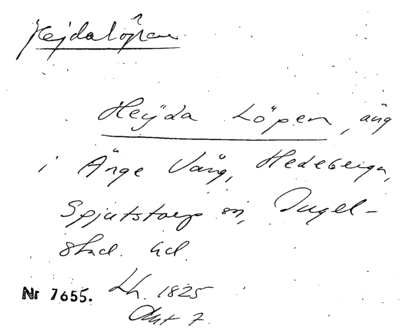 Hejdalöpen
Heÿda Löpen, äng
i Änge Vång, Hedeberga,
Spjutstorp sn, Ingel-
stad hd.
Nr 7655. Lh. 1825
Akt 7